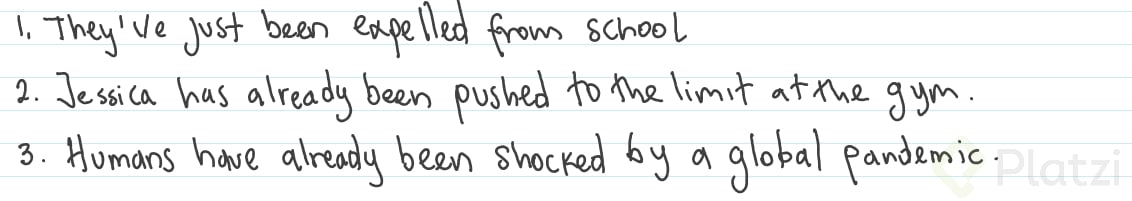 1. They've just been expelled from school
2. Jessica has already been pushed to the limit at the gym.
3. Humans have already been shocked by a global pandemic.
Platzi